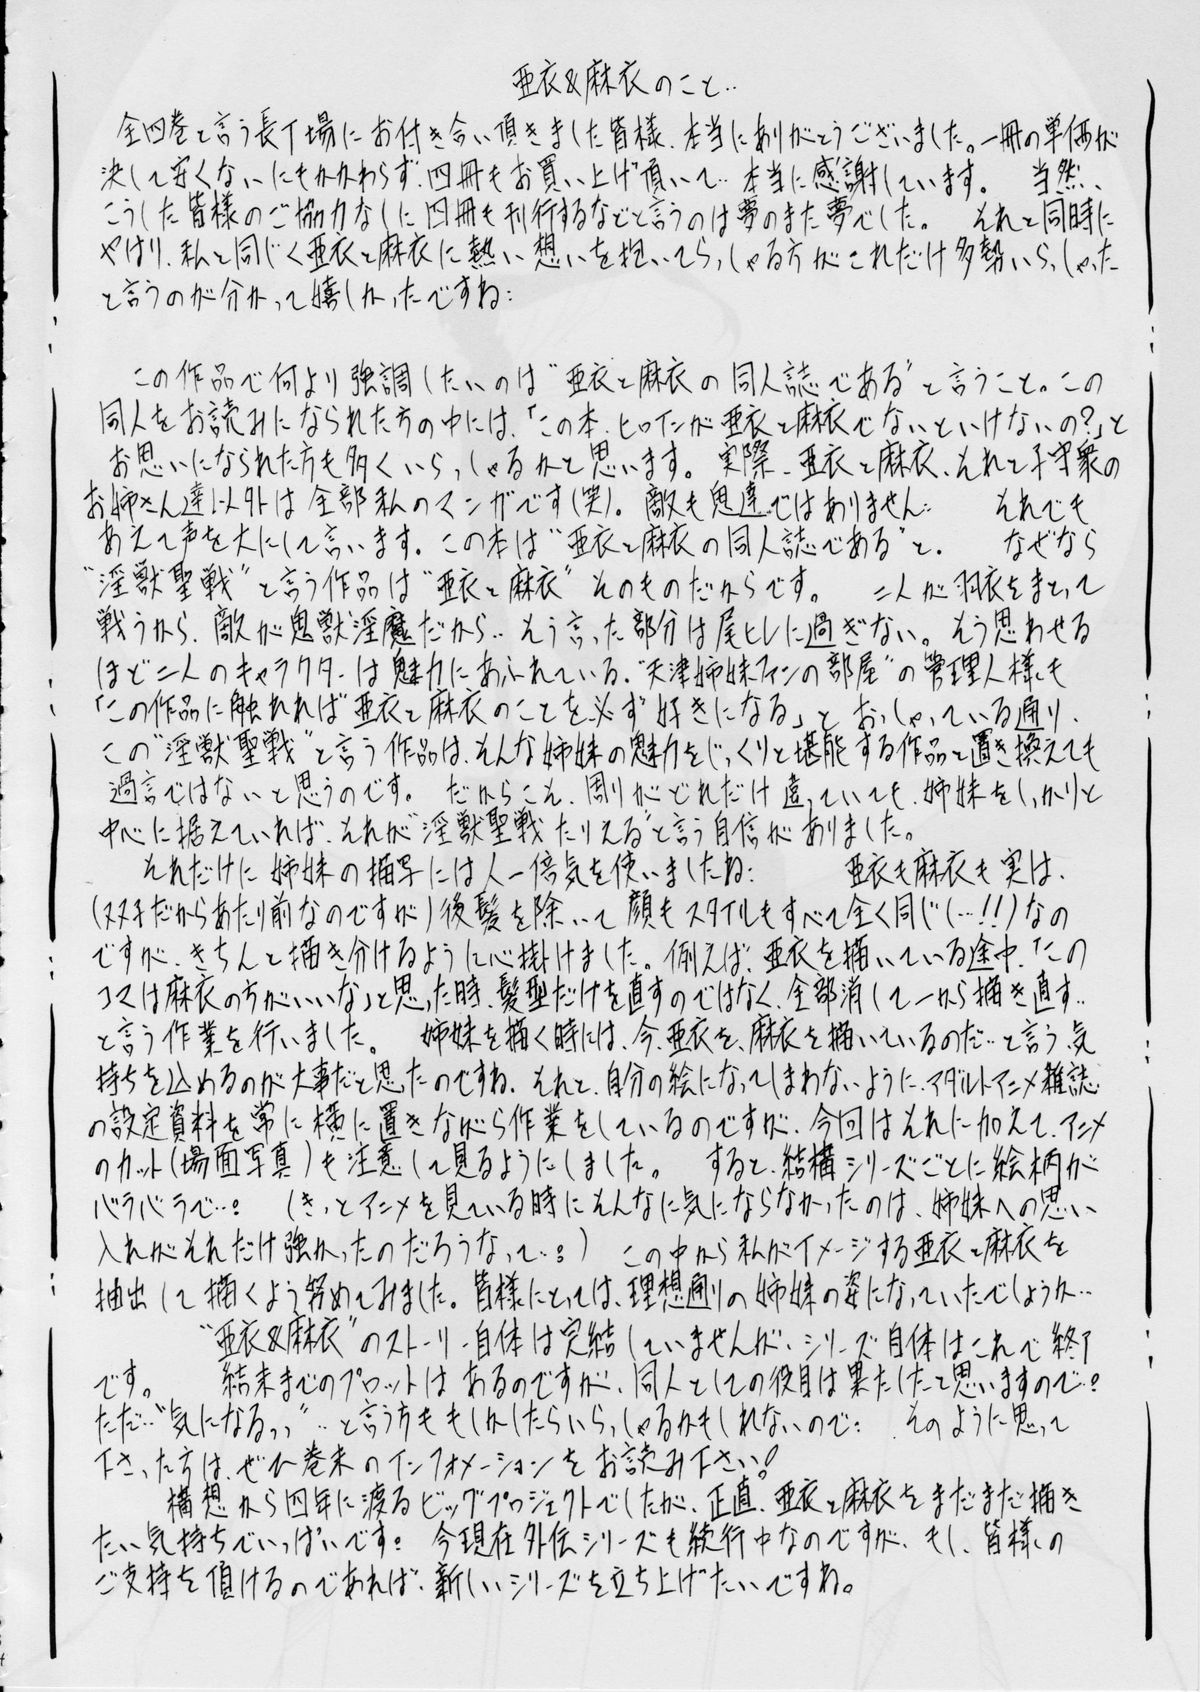 亜衣&麻衣のこと‥
全四巻と言う長丁場にお付き合い頂きました皆様、本当にありがとうございました。一冊の単価が
決して安くないにもかかわらず、四冊もお買い上げ頂いて‥本当に感謝しています。 当然、
こうした皆様のご協力なしに四冊も刊行するなどと言うのは夢のまた夢でした。 それと同時に
やはり、私と同じく亜衣と麻衣に熱い想いを抱いてらっしゃる方がこれだけ多勢いらっしゃった
と言うのが分かって嬉しかったですね:
この作品で何より強調したいのは“亜衣と麻衣の同人誌である”と言うこと。この
同人をお読みになられた方の中には、「この本、ヒロインが亜衣と麻衣でないといけないの?」と
お思いになられた方も多くいらっしゃるかと思います。実際、亜衣と麻衣、それと子守衆の
お姉さん達以外は全部私のマンガです(笑)。敵も鬼達ではありません‥ それでも
あえて声を大にして言います。この本は“亜衣と麻衣の同人誌である”と。 なぜなら
“淫獣聖戦”と言う作品は“亜衣と麻衣”そのものだからです。 二人が羽衣をまとって
戦うから、敵が鬼獣淫魔だから‥そう言った部分は尾ヒレに過ぎない。そう思わせる
ほど二人のキャラクターは魅力にあふれている、“天津姉妹ファンの部屋”の管理人様も
「この作品に触れれば亜衣と麻衣のことを必ず好きになる」とおっしゃっている通り、
この“淫獣聖戦”と言う作品は、そんな姉妹の魅力をじっくりと堪能する作品と置き換えても
過言ではないと思うのです。 だからこそ、周りがどれだけ違っていても、姉妹をしっかりと
中心に据えていれば、それが“淫獣聖戦たりえる”と言う自信がありました。
それだけに姉妹の描写には人一倍気を使いましたね: 亜衣も麻衣も実は、
(ヌヌ子だからあたり前なのですが)後髪を除いて顔もスタイルもすべて全く同じ(…!!)なの
ですが、きちんと描き分けるように心掛けました。例えば、亜衣を描いている途中、「この
コマは麻衣の方がいいな」と思った時、髪型だけを直すのではなく、全部消して一から描き直す‥
と言う作業を行いました。 姉妹を描く時には、今、亜衣を、麻衣を描いているのだ‥と言う気
持ちを込めるのが大事だと思ったのですね、それと、自分の絵になってしまわないように、アダルトアニメ雑誌
の設定資料を常に横に置きながら作業をしているのですが、今回はそれに加えて、アニメ
のカット(場面写真)も注意して見るようにしました。 すると、結構シリーズごとに絵柄が
バラバラで‥。 (きっとアニメを見ている時にそんなに気にならなかったのは、姉妹への思い
入れがそれだけ強かったのだろうなって‥:) この中から私がイメージする亜衣と麻衣を
抽出して描くよう努めてみました。皆様にとっては、理想通りの姉妹の姿になっていたでしょうか‥
“亜衣&麻衣”のストーリー自体は完結していませんが、シリーズ自体はこれで終了
です。 結末までのプロットはあるのですが、同人としての役目は果たしたと思いますので‥。
ただ‥“気になるっっ”‥と言う方ももしかしたらいらっしゃるかもしれないので: そのように思って
下さった方は、ぜひ巻末のインフォメーションをお読み下さい!
構想から四年に渡るビッグプロジェクトでしたが、正直、亜衣と麻衣をまだまだ描き
たい気持ちでいっぱいです: 今現在外伝シリーズも続行中なのですが、もし、皆様の
ご支持を頂けるのであれば、新しいシリーズを立ち上げたいですね。